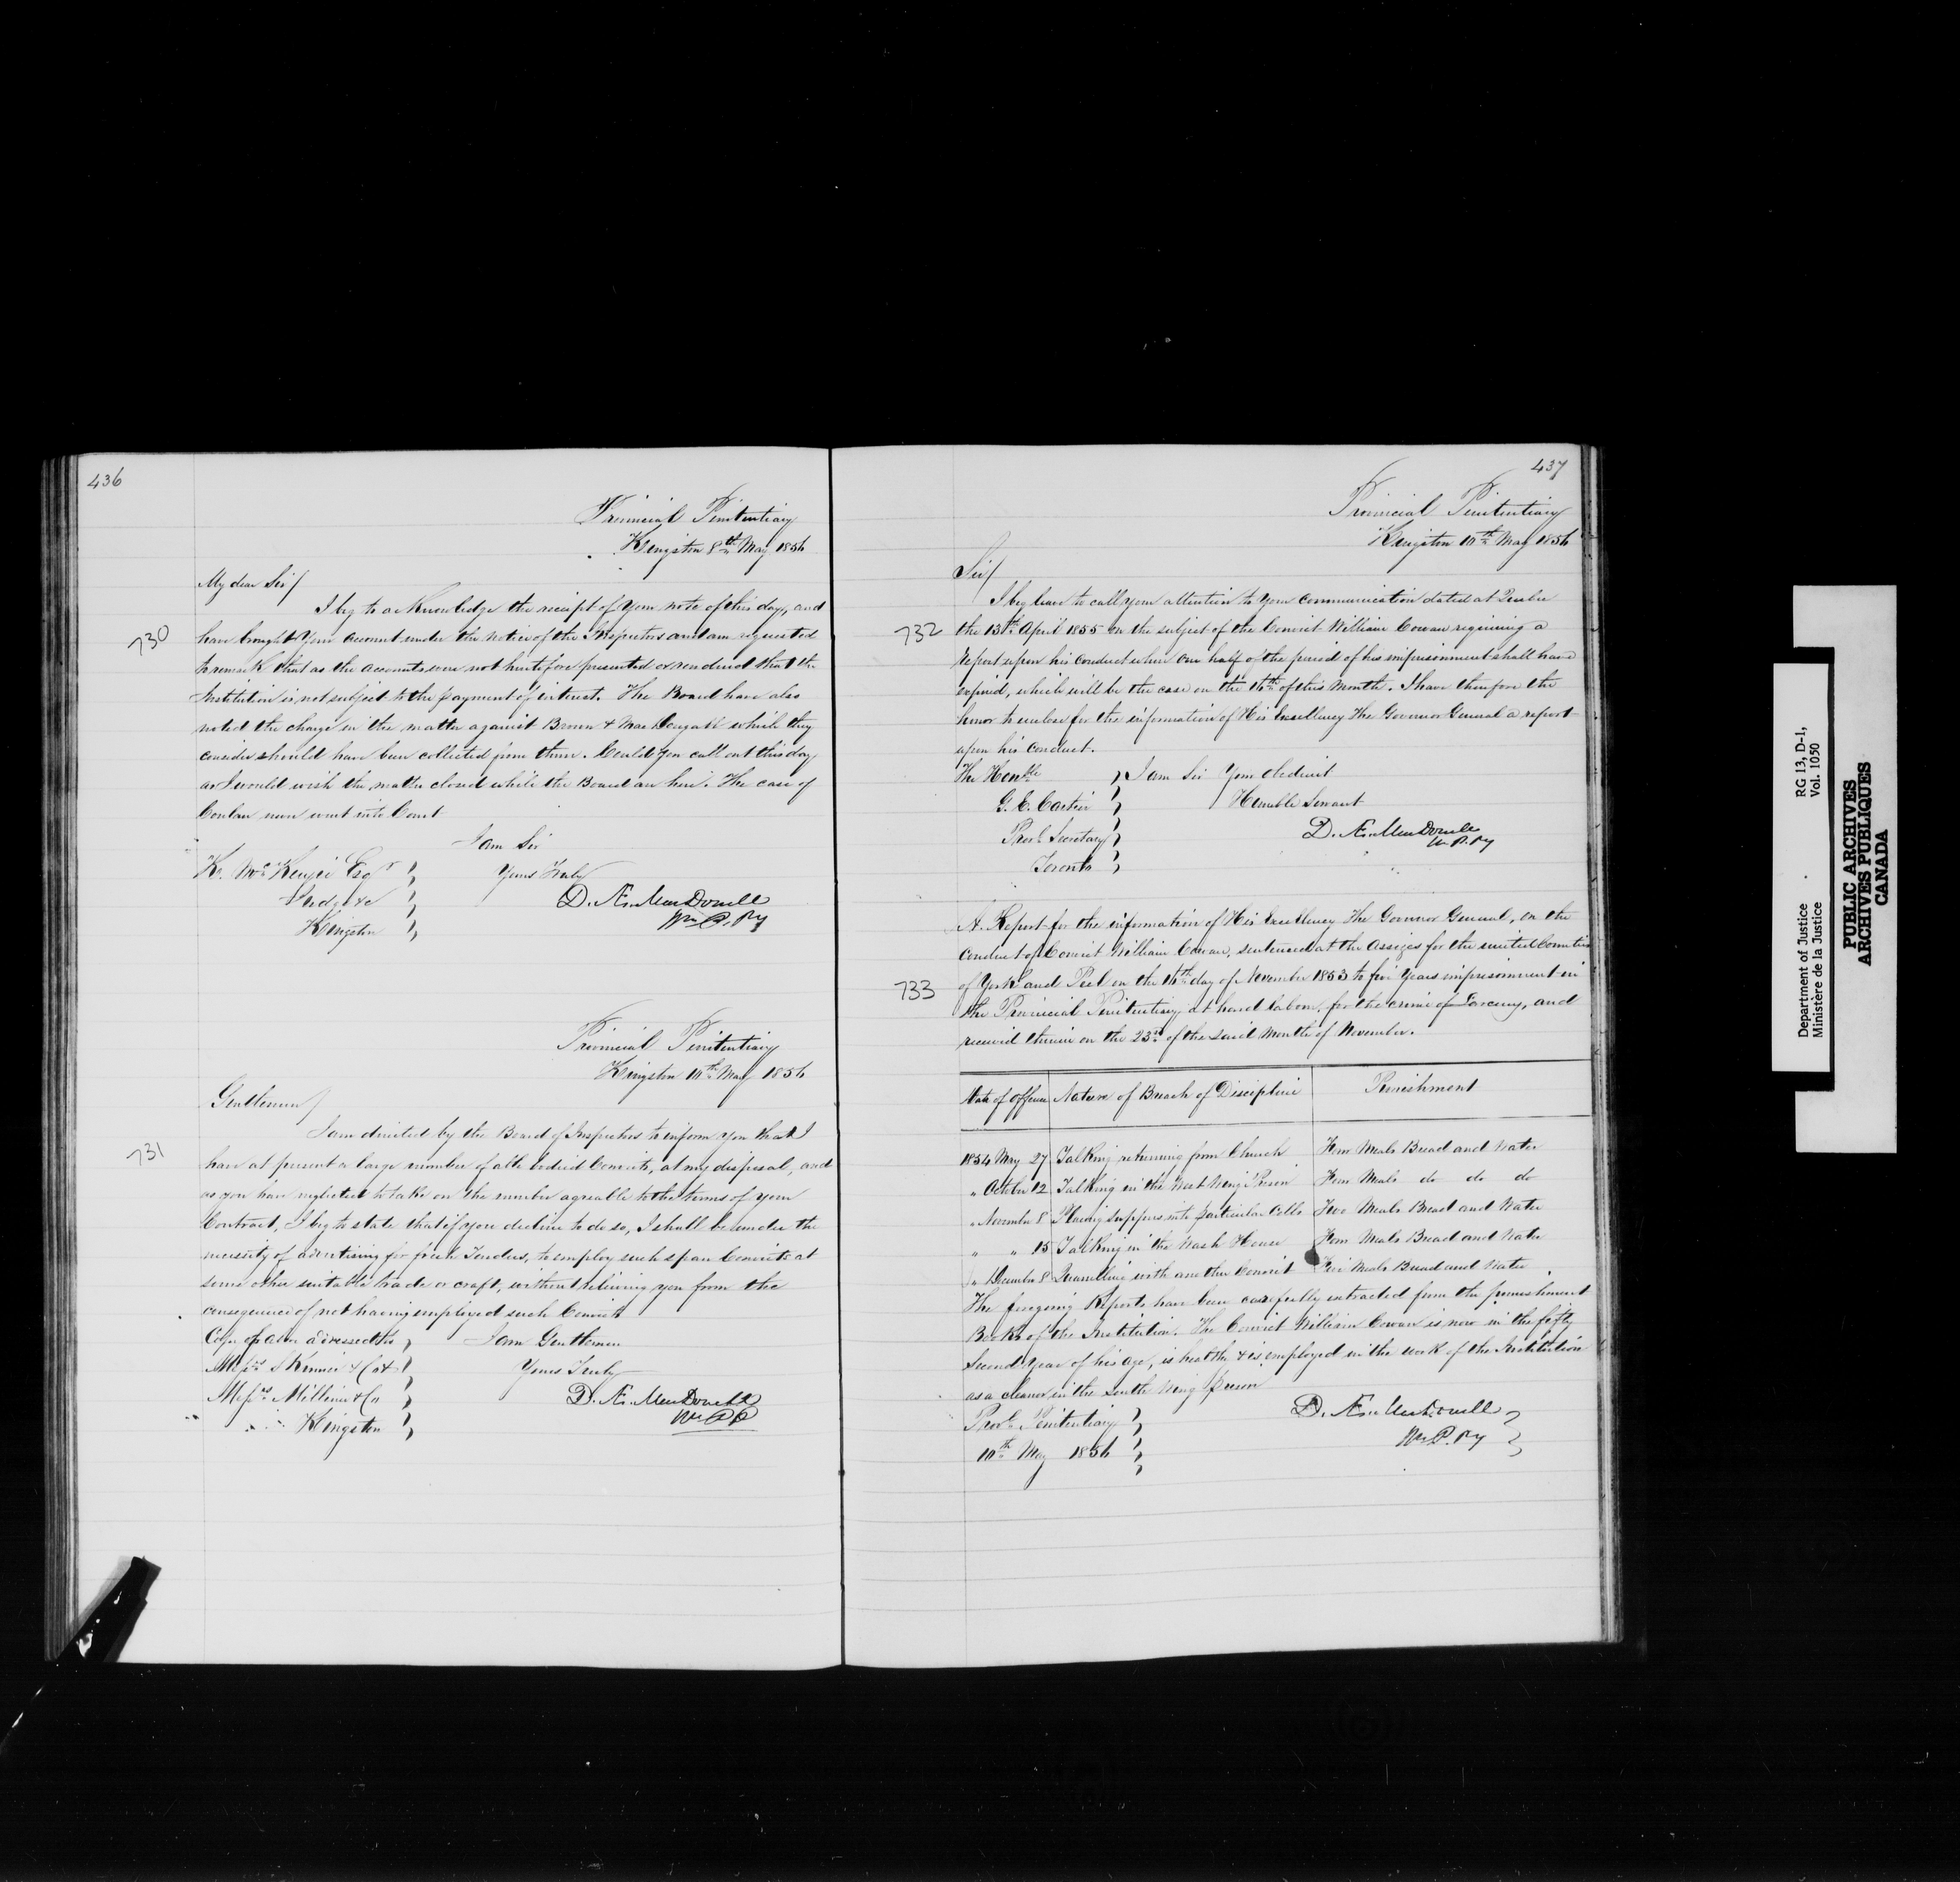 436
Provincial Penitentiary
Kingston 8th May 1856
My dear Sir/
I beg to acknowledge the receipt of your note of this day, and
730
have brought your account under the notice of the Inspectors and am requested
to remark that as the accounts were not heretofore presented or rendered that the
Institution is not subject to the payment of interest. The Board have also
noted the charge in the matter against Brown & MacDougall which they
consider should have been collected from them. Could you call out this day
as I would wish the matter closed while the Board are here. The case of
Conlan never went into Court
I am Sir
K. McKenzie Esqr
Yours Truly
Judge &c
D. Æ. MacDonell
Kingston
Wn P. Py
Provincial Penitentiary
Kingston 10th May 1856
Gentlemen/
I am directed by the Board of Inspectors to inform you that I
731
have at present a large number of able bodied Convicts, at my disposal, and
as you have neglected to take on the number agreable to the terms of your
Contract, I beg to state that if you decline to do so, I shall be under the
necessity of advertising for fresh Tenders, to employ such spare Convicts at
some other suitable trade or craft, without relieving you from the
consequences of not having employed such Convicts
Copy of above addressed to
I am Gentlemen
Messrs Skinner & Co &
Yours Truly
Messrs Millener & Co
D. Æ. MacDonell
Kingston
Wn P P
437
Provincial Penitentiary
Kingston 10th May 1856
Sir/
I beg leave to call your attention to your communication dated at Quebec
732
the 13th April 1855 on the subject of the Convict William Cowan requiring a
Report upon his conduct when one half of the period of his imprisonment shall have
expired, which will be the case on the 16th of this Month. I have therefore the
honor to enclose for the information of His Excellency The Governor General a report
upon his conduct.
The Honble
I am Sir Your obedient
G. E. Cartier
Humble Servant
Provl Secretary
D. Æ. MacDonell
W. P. Py
Toronto
A Report for the information of His Excellency The Governor General, on the
conduct of Convict William Cowan, sentenced at the Assizes for the united Counties
733
of York and Peel on the 16th day of November 1853 to five Years imprisonment in
the Provincial Penitentiary at hard labour, for the crime of Larceny, and
received therein on the 23rd of the said Month of November.
Date of offence Nature of Breach of Discipline Punishment
1854 May 27 Talking returning from Church Four Meals Bread and Water
" October 12 Talking in the West Wing Prison Four Meals do do do
" November 8 Placing suppers into particular Cells Two Meals Bread and Water
" " 15 Talking in the Wash House Four Meals Bread and Water
" December 8 Quarrelling with another Convict Five Meals Bread and Water
The foregoing Reports have been carefully extracted from the punishment
Books of the Institution. The Convict William Cowan is now in the fifty
second year of his age, is healthy & is employed in the work of the Institution
as a cleaner in the South Wing Prison
Provl Penitentiary
D. Æ. MacDonell
10th May 1856
Wn P. Py
Department of Justice
Ministère de la Justice
RG 13, D-1,
Vol. 1050
PUBLIC ARCHIVES
ARCHIVES PUBLIQUES
CANADA